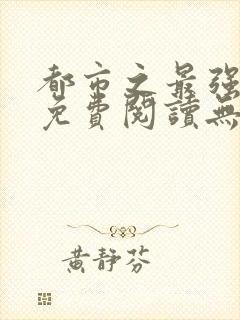 都市之最强
免費閱讀無
黃靜芬